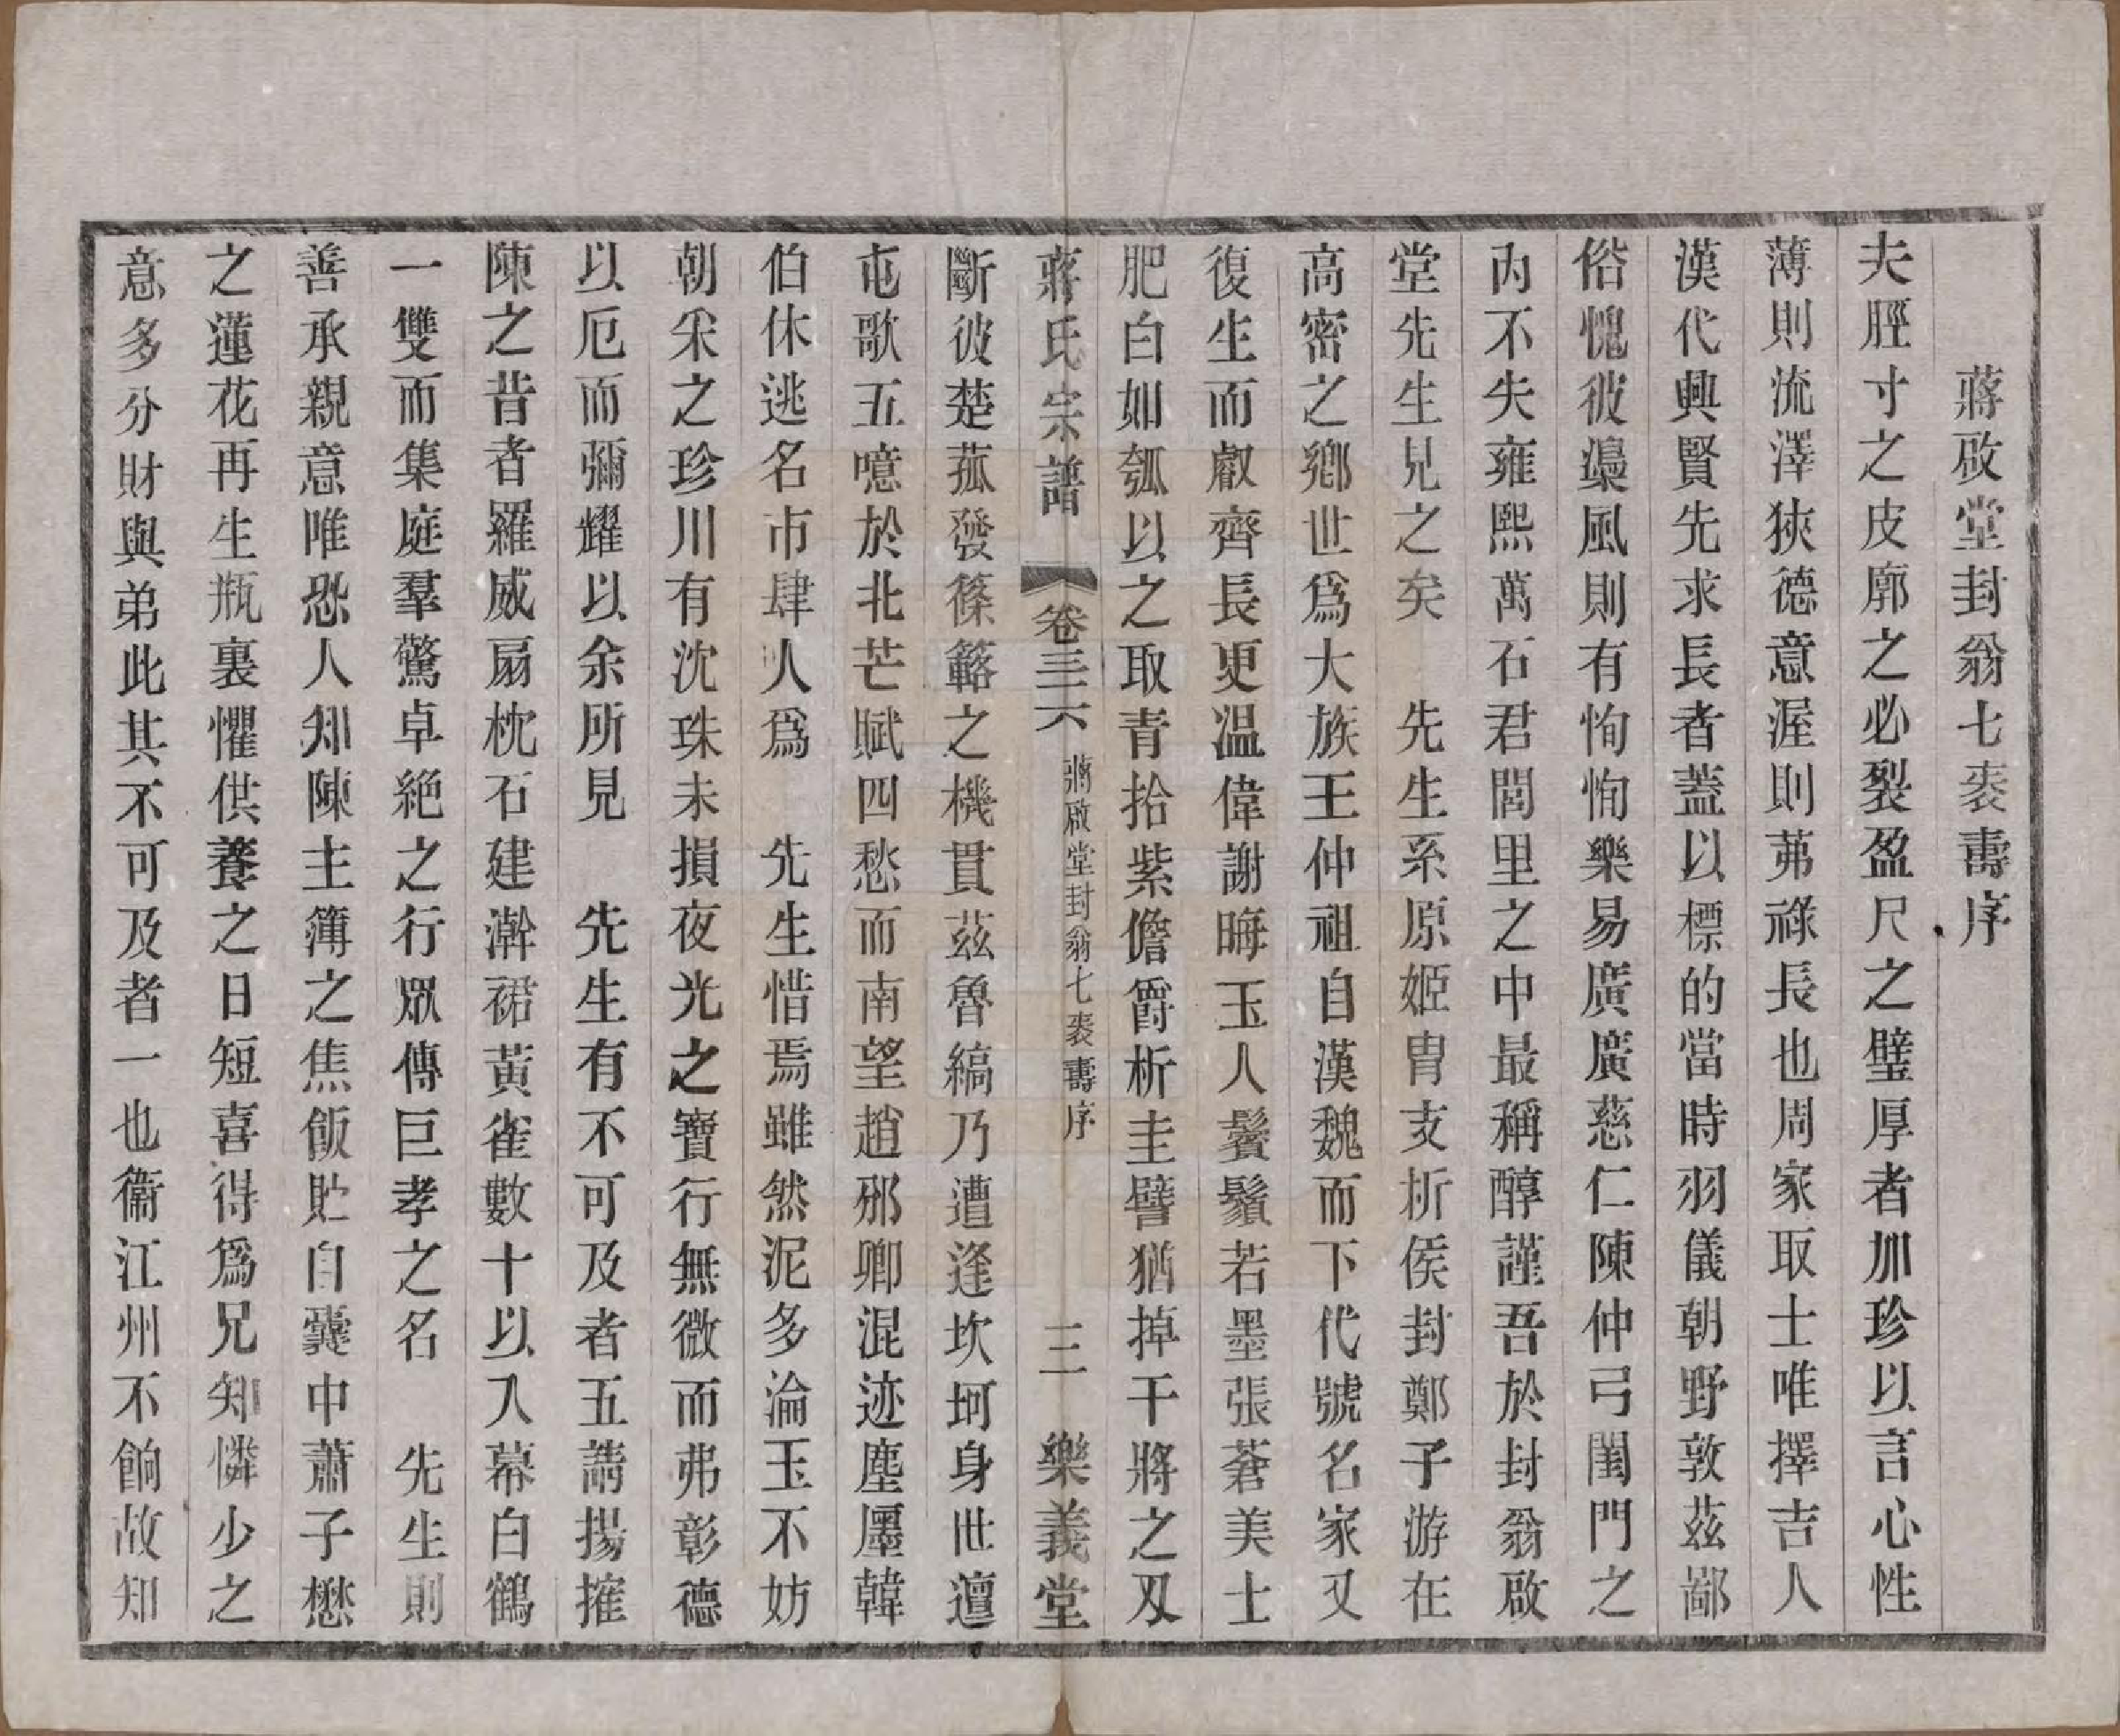 蔣啟堂封翁七袠壽序
夫脛寸之皮廓之必裂盈尺之璧厚者加珍以言心性
薄則流澤狹德意渥則茀祿長也周家取士唯擇吉人
漢代興賢先求長者蓋以標的當時羽儀朝野敦茲鄙
俗愧彼澆風則有恂恂樂易廣廣慈仁陳仲弓閨門之
內不失雍熙萬石君閭里之中最稱醇謹吾於封翁啟
堂先生見之矣　先生系原姬冑支折侯封鄭子游在
高密之鄉世為大族王仲祖自漢魏而下代號名家又
復生而叡齊長更温偉謝晦玉人鬢鬚若墨張蒼美士
肥白如瓠以之取青拾紫儋爵析圭譬猶掉干將之刄
蔣氏宗譜　卷三六　蔣啟堂封翁七袠壽序　三　樂義堂
斷彼楚菰發篠簵之機貫茲魯縞乃遭逢坎坷身世邅
屯歌五噫於北芒賦四愁而南望趙邠卿混迹塵㕓韓
伯休逃名市肆人為　先生惜焉雖然泥多淪玉不妨
朝采之珍川有沈珠未損夜光之寶行無微而弗彰德
以厄而彌耀以余所見　先生有不可及者五請揚搉
陳之昔者羅威扇枕石建澣裙黃雀數十以入幕白鶴
一雙而集庭羣驚卓絕之行眾傳巨孝之名　先生則
善承親意唯恐人知陳主簿之焦飯貯自囊中蕭子懋
之蓮花再生瓶裏懼供養之日短喜得為兄知憐少之
意多分財與弟此其不可及者一也衞江州不餉故知